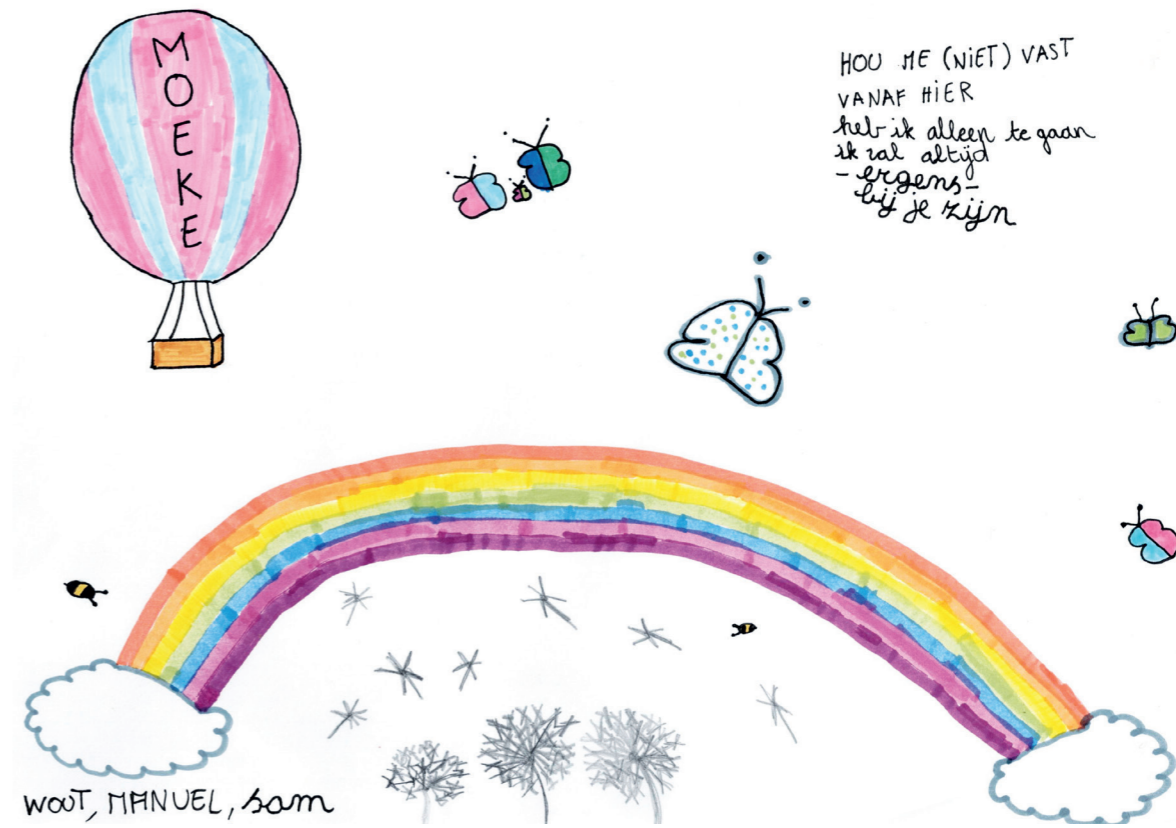 MOEKE
HOU ME (NIET) VAST
VANAF HIER
heb ik alleen te gaan
ik zal altijd
- ergens -
bij je zijn
WOUT, MANUEL, sam